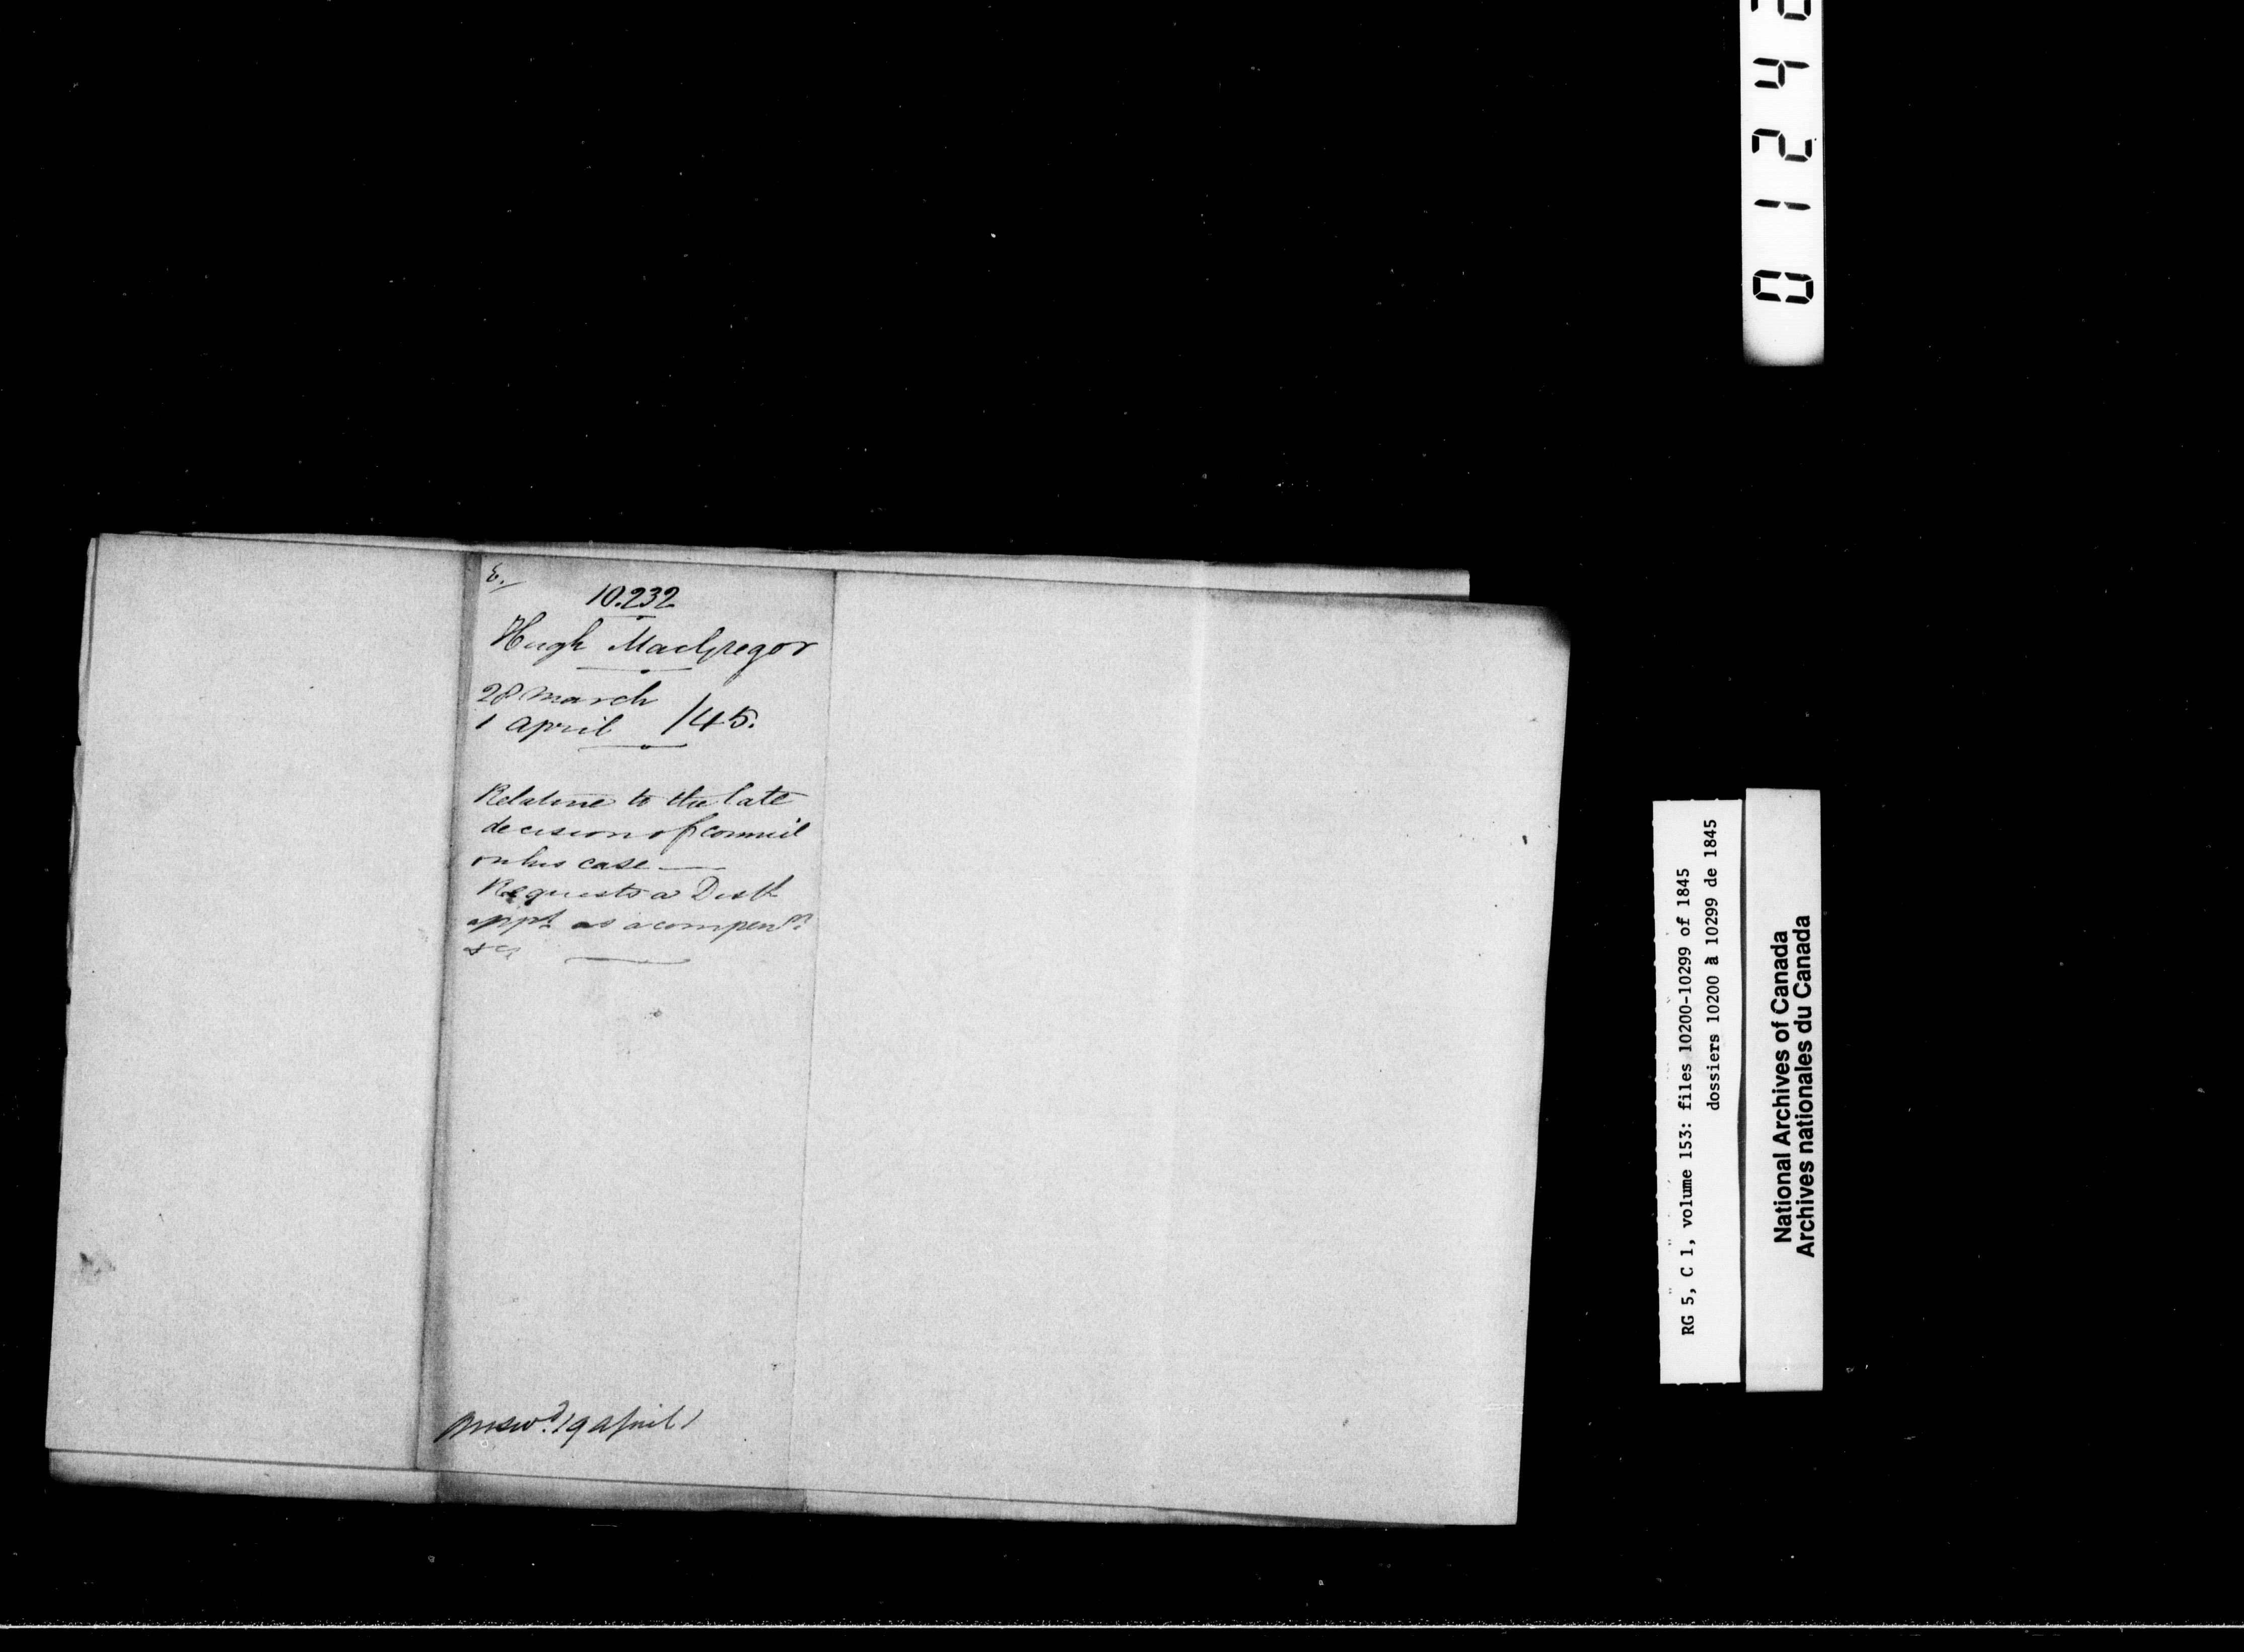 E.
10.232
Hugh MacGregor
28 March
1 April /45.
Relative to the late
decision of Council
on his case —
Requests a Distt
appt as a compenn
&c
Answd. 19 April
RG 5, C 1, volume 153: files 10200-10299 of 1845
dossiers 10200 à 10299 de 1845
National Archives of Canada
Archives nationales du Canada
0 1 2 4